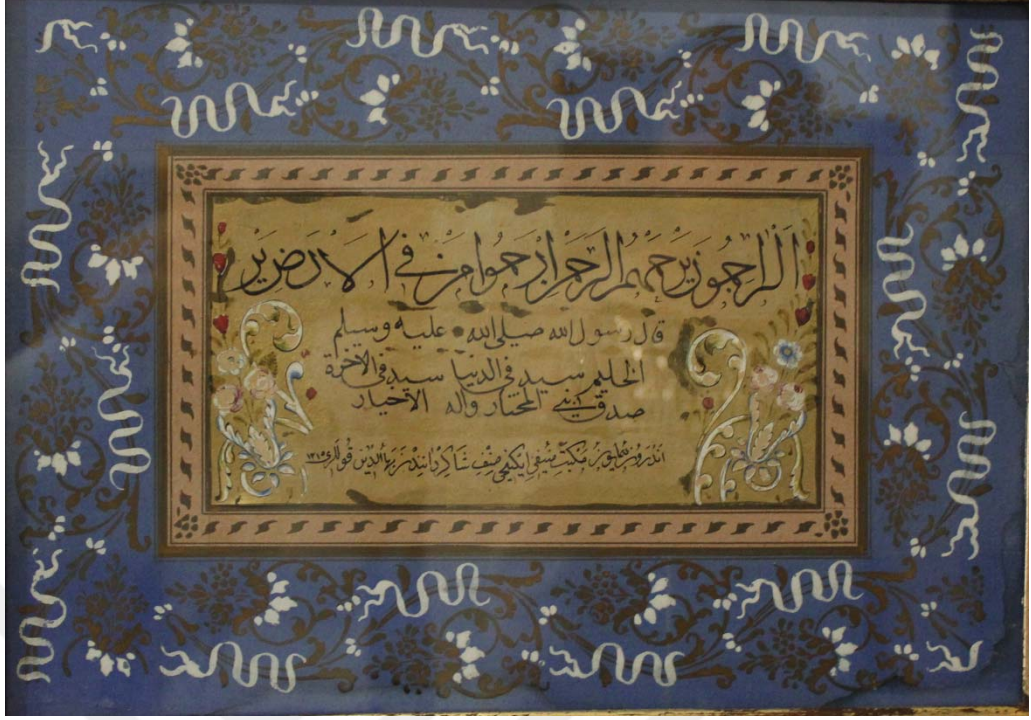 الراحمون يرحمهم الرحمن ارحموا من في الارض ير
قال رسول الله صلى الله عليه وسلم
الحليم سيد في الدنيا سيد في الآخرة
صدق نبي المختار واله الاخيار
اندرون همايون مكتبي ايكنجي صنف شاكرداندن بهاءالدين قوللری